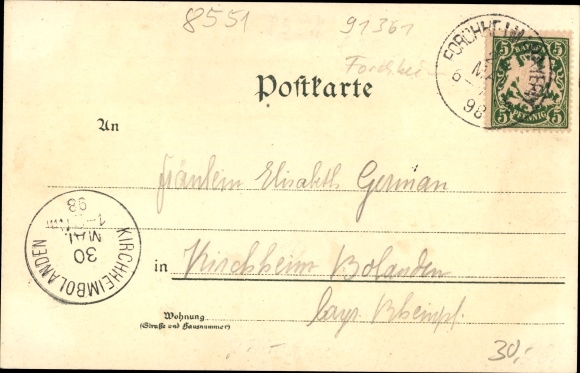 8551
91361
Forchheim
FORCHHEIM
98
5 BAYERN 5
5 PFENNIG 5
Postkarte
An
Fräulein Elisabeth German
in Kirchheim Bolanden
bayr. Rheinpf.
Wohnung
(Straße und Hausnummer)
KIRCHHEIMBOLANDEN
30
MAI
98
30,-